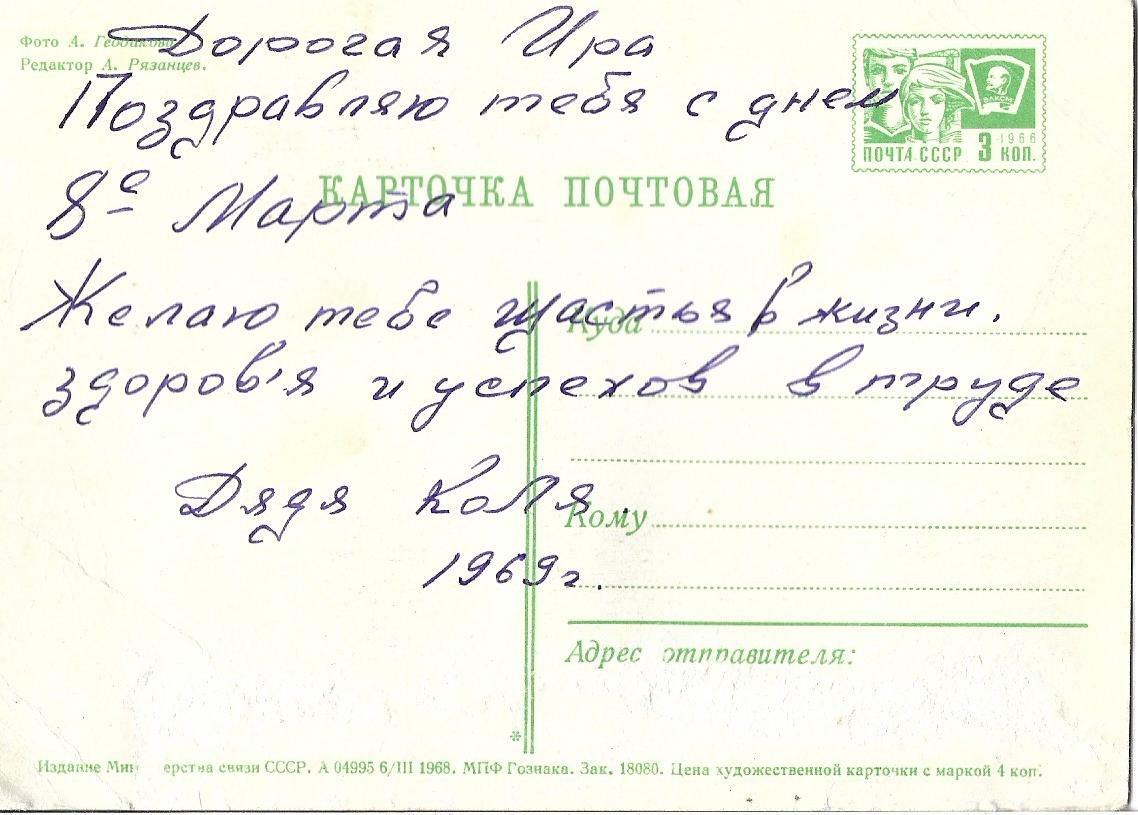 Фото А.
Дорогая Ира
Редактор А. Рязанцев.
Поздравляю тебя с днем
ВЛКСМ
1966
ПОЧТА СССР 3 КОП.
КАРТОЧКА ПОЧТОВАЯ
8е Марта
Желаю тебе щастья в жизни.
Куда
здоров'я и успехов в труде
Дядя Коля.
Кому
1969г.
Адрес отправителя:
*
Издание Мин ерства связи СССР. А 04995 6/III 1968. МПФ Гознака. Зак. 18080. Цена художественной карточки с маркой 4 коп.